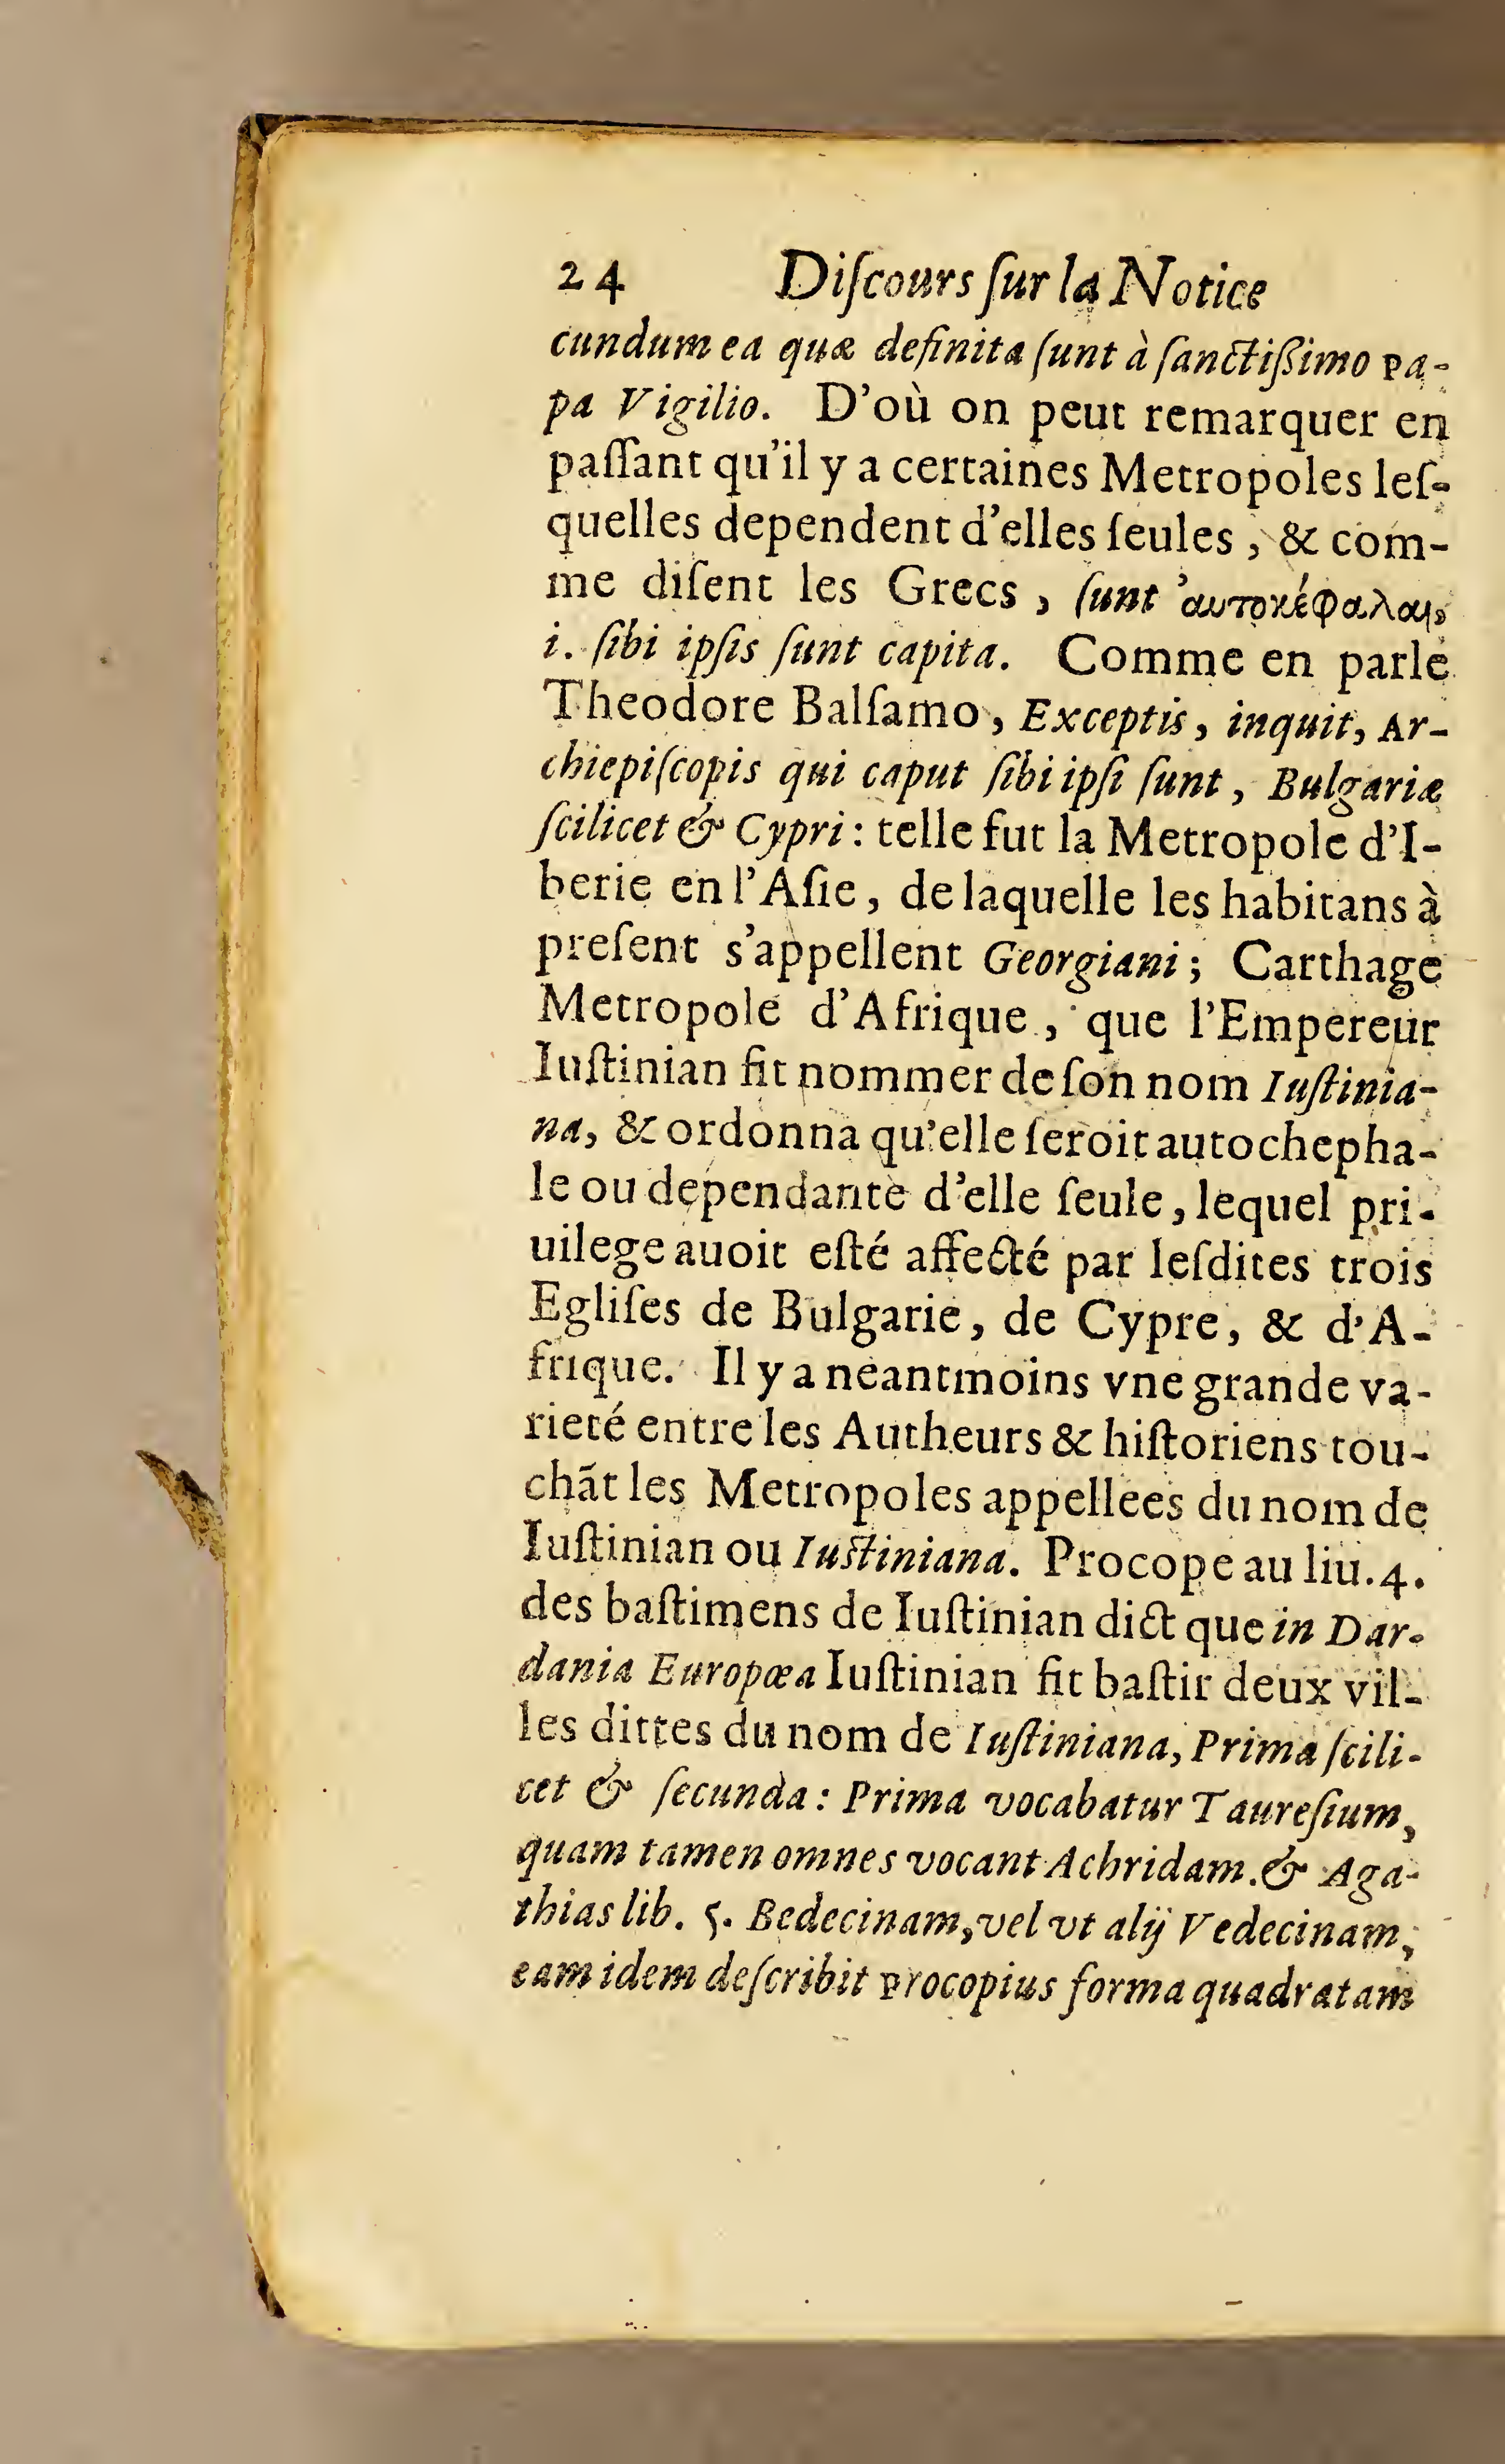 24 Diſcours ſur la Notice
cundum ea quæ definita ſunt à ſanctißimo Pa-
pa Vigilio. D'où on peut remarquer en
paſſant qu'il y a certaines Metropoles leſ-
quelles dependent d'elles ſeules, & com-
me diſent les Grecs, ſunt αὐτοκέφαλαι,
i. ſibi ipſis ſunt capita. Comme en parle
Theodore Balſamo, Exceptis, inquit, Ar-
chiepiſcopis qui caput ſibi ipſi ſunt, Bulgariæ
ſcilicet & Cypri: telle fut la Metropole d'I-
berie en l'Aſie, de laquelle les habitans à
preſent s'appellent Georgiani; Carthage
Metropole d'Afrique, que l'Empereur
Iuſtinian fit nommer de ſon nom Iuſtinia-
na, & ordonna qu'elle ſeroit autochepha-
le ou dependante d'elle ſeule, lequel pri-
uilege auoit eſté affecté par leſdites trois
Egliſes de Bulgarie, de Cypre, & d'A-
frique. Il y a neantmoins vne grande va-
rieté entre les Autheurs & hiſtoriens tou-
chãt les Metropoles appellees du nom de
Iuſtinian ou Iuſtiniana. Procope au liu. 4.
des baſtimens de Iuſtinian dict que in Dar-
dania Europœa Iuſtinian fit baſtir deux vil-
les dittes du nom de Iuſtiniana, Prima ſcili-
cet & ſecunda: Prima vocabatur Taureſium,
quam tamen omnes vocant Achridam. & Aga-
thias lib. 5. Bedecinam, vel vt alij Vedecinam,
eam idem deſcribit Procopius forma quadratam